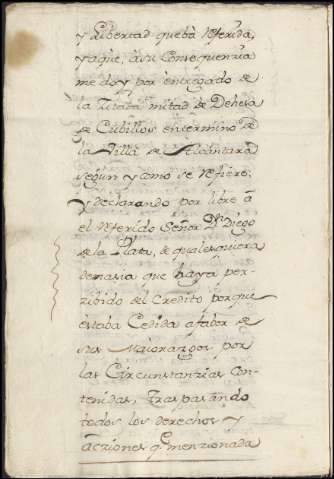 y Libertad queba referida,
yaque, asu Consequenzia
me doy por entregado de
la zitada mitad de Dehesa
de Cubillos en termino de
la Villa de Alcántara
segun y como se refiere;
y declarando por libre â
el referido Señor Dn Diego
de la Plata, de qualesquiera
demasia que haya per-
zibido del Credito porque
estaba Cedida afabor de
sus Maiorazgos por
las Circunstanzias con-
tenidas, traspasando
todos los derechos y
acziones qe. menzionada